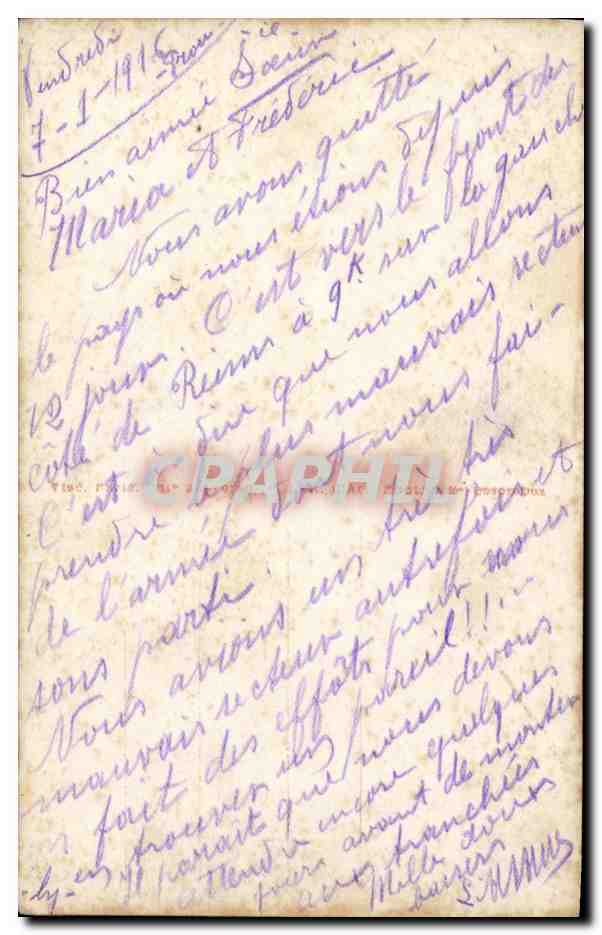 Vendredi
7-1-1916
Bien aimée Sœur
Maria et Frédéric
Nous avons quitté
le pays où nous étions depuis
12 jours. C'est vers le front de
Reims à 9k sur la gauche
C'est à dire que nous allons
prendre le plus mauvais secteur
de l'armée dont nous fai-
sons parti.
Nous avions un très très
mauvais secteur autrefois et
a fait des efforts pour nous
en trouver un pareil!!...
Il parait que nous devons
attendre encore quelques
jours avant de monter
aux tranchées
Mille doux
baisers
CPARHTL